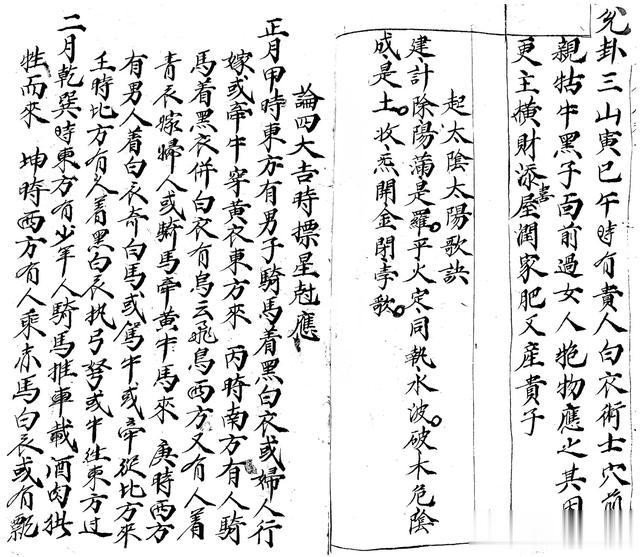 兊卦三山寅巳午時有貴人白衣術士穴前
親牯牛黑子面前過女人抱物應之其因
更主横財添喜屋潤家肥又産貴子
起太陰太陽歌訣
建計除陽滿是羅平火定同執水波破木危陰
成是土收炁開金閉孛歌
論四大吉時摽星尅應
正月甲時東方有男子騎馬着黑白衣或婦人行
嫁或牽牛穿黃衣東方來 丙時南方有人騎
馬着黑衣併白衣有鳥云飛鳥西方又有人着
青衣嫁婦人或騎馬牽黃牛馬來 庚時西方
有男人着白衣奇白馬或駕牛或牽從北方來
壬時北方有人着黑白衣执弓弩或牛牲東方过
二月乾巽時東方有少年人騎馬推車載酒肉拱
牲而來 坤時西方有人乘赤馬白衣或有飄